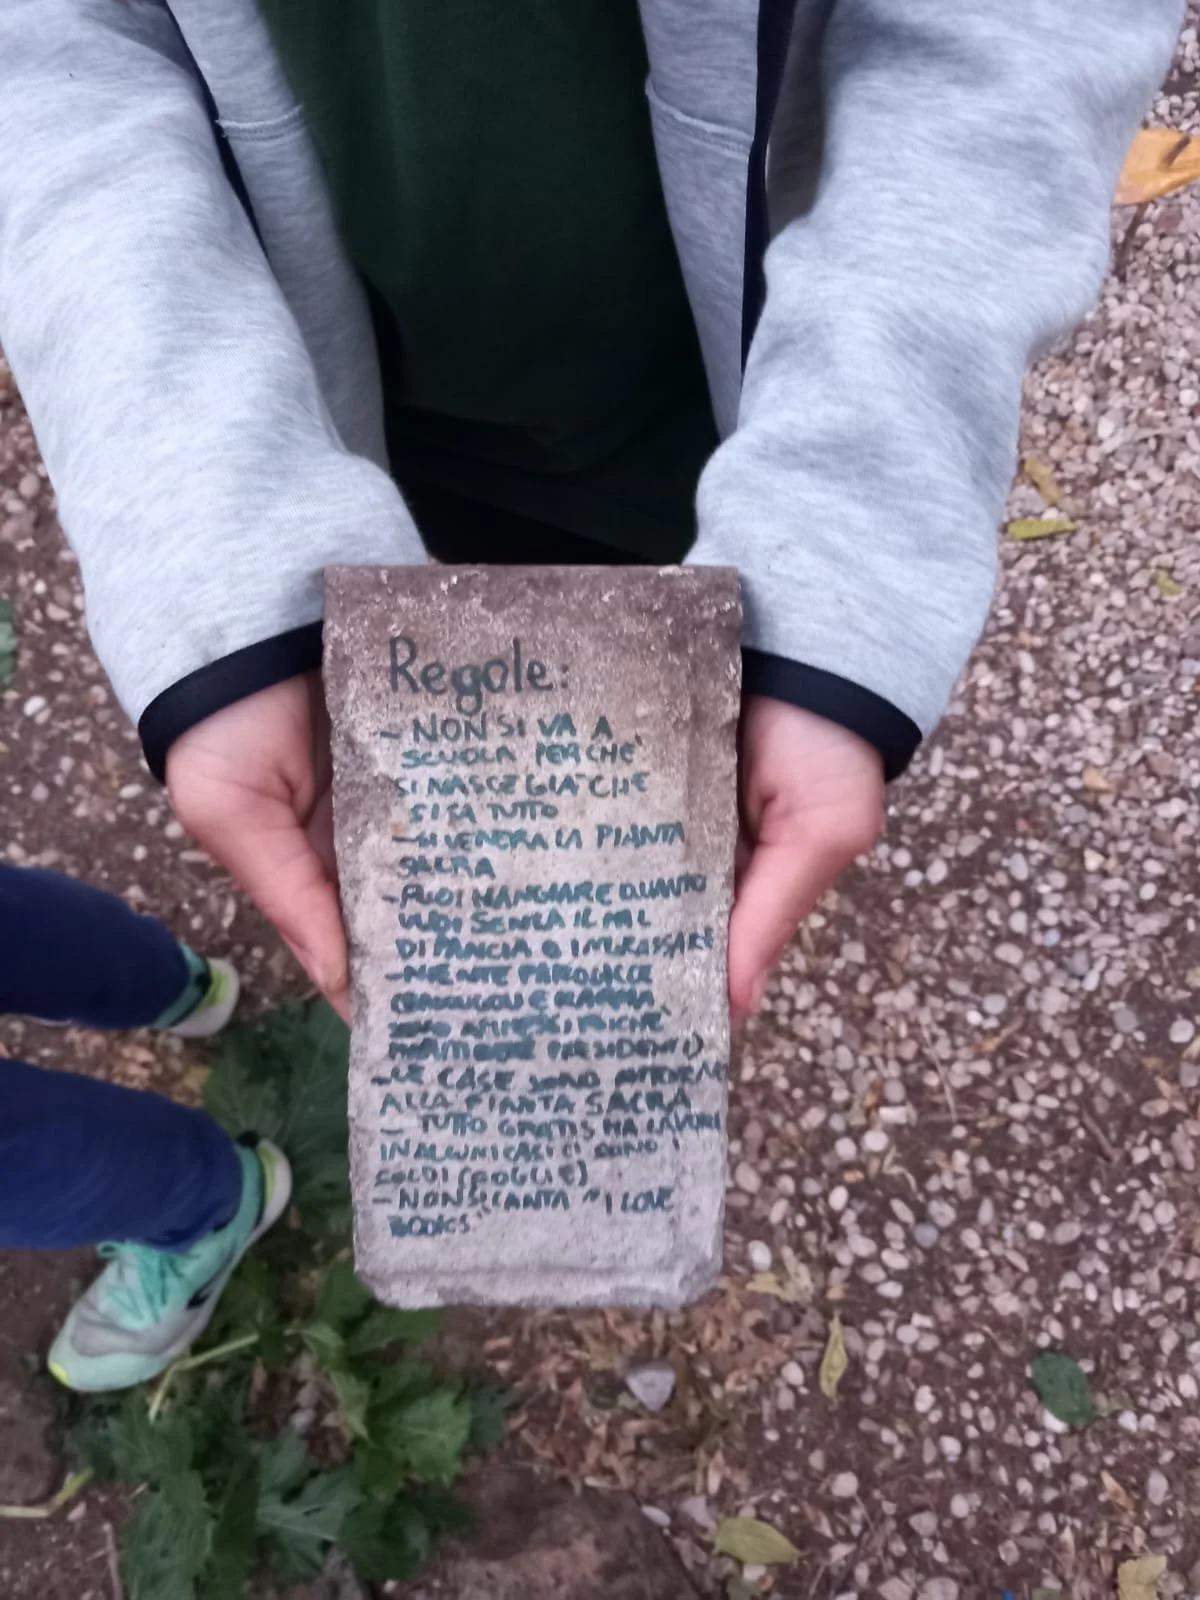 Regole:
- NON SI VA A
SCUOLA PERCHE'
SI NASCE GIA' CHE
SI SA TUTTO
- SI VENERA LA PIANTA
SACRA
- PUOI MANGIARE QUANTO
VUOI SENZA IL MAL
DI PANCIA O INGRASSARE
- NIENTE PAROLACCE
E
SONO
PRESIDENTI)
- LE CASE SONO ATTORNO
ALLA PIANTA SACRA
- TUTTO GRATIS MA LAVORI
IN ALCUNI CASI CI SONO I
SOLDI (FOGLIE)
- NON SI CANTA "I LOVE
BOOKS"